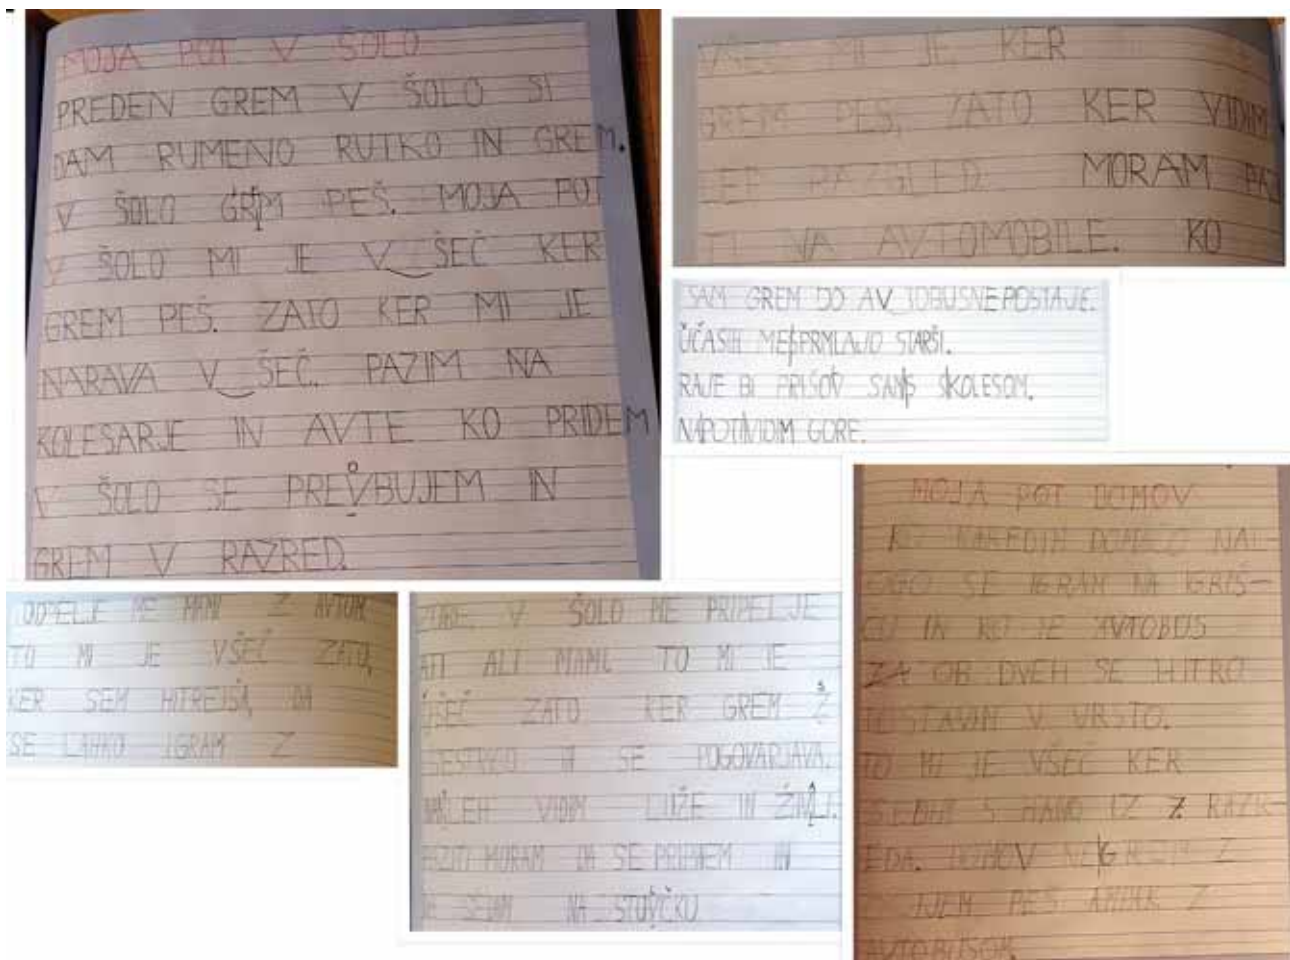 MOJA POT V ŠOLO
PREDEN GREM V ŠOLO SI
DAM RUMENO RUTKO IN GREM.
V ŠOLO GREM PEŠ. MOJA POT
V ŠOLO MI JE V ŠEČ KER
GREM PEŠ. ZATO KER MI JE
NARAVA V ŠEČ. PAZIM NA
KOLESARJE IN AVTE KO PRIDEM
V ŠOLO SE PREOBUJEM IN
GREM V RAZRED.
VŠEČ MI JE, KER
GREM PEŠ, ZATO KER VIDIM
LEP RAZGLED. MORAM PAZ
TI NA AVTOMOBILE. KO
SAM GREM DO AV TOBUSNE POSTAJE.
ME STARŠI.
RAJE BI PRIŠOV SAM S KOLESOM.
NA POTI VIDIM GORE.
ODPELJE ME MAMI Z AVTOM.
TO MI JE VŠEČ ZATO,
KER SEM HITREJŠA, DA
SE LAHKO IGRAM Z
V ŠOLO ME PRIPELJE
ATI ALI MAMI. TO MI JE
VŠEČ ZATO KER GREM S
SESTRICO IN SE POGOVARJAVA.
VIDIM LUŽE IN
PAZITI MORAM DA SE PRIPNEM IN
DA SEDIM NA STOVČKU
MOJA POT DOMOV
KO NAREDIM DOMAČO NAL-
OGO SE IGRAM NA IGRIŠ-
ČU IN KO JE AVTOBUS
ZA OB DVEH SE HITRO
POSTAVIM V VRSTO.
TO MI JE VŠEČ KER
SEDIM S HANO IZ Z RAZR-
EDA. DOMOV NE GREM Z
PEŠ AMPAK Z
AVTOBUSOM.